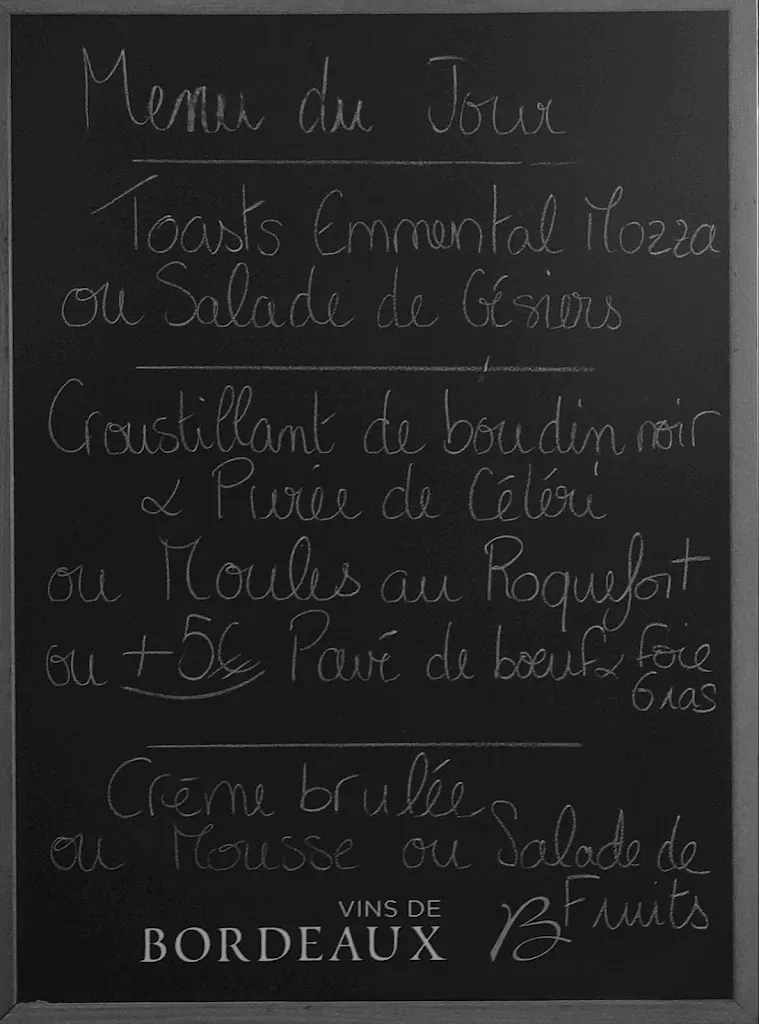 Menu du Jour
Toasts Emmental Mozza
ou Salade de Gésiers
Croustillant de boudin noir
& Purée de Céléri
ou Moules au Roquefort
ou +5€ Pavé de boeuf & Foie
Gras
Crème brulée
ou Mousse ou Salade de
Fruits
VINS DE
BORDEAUX
B